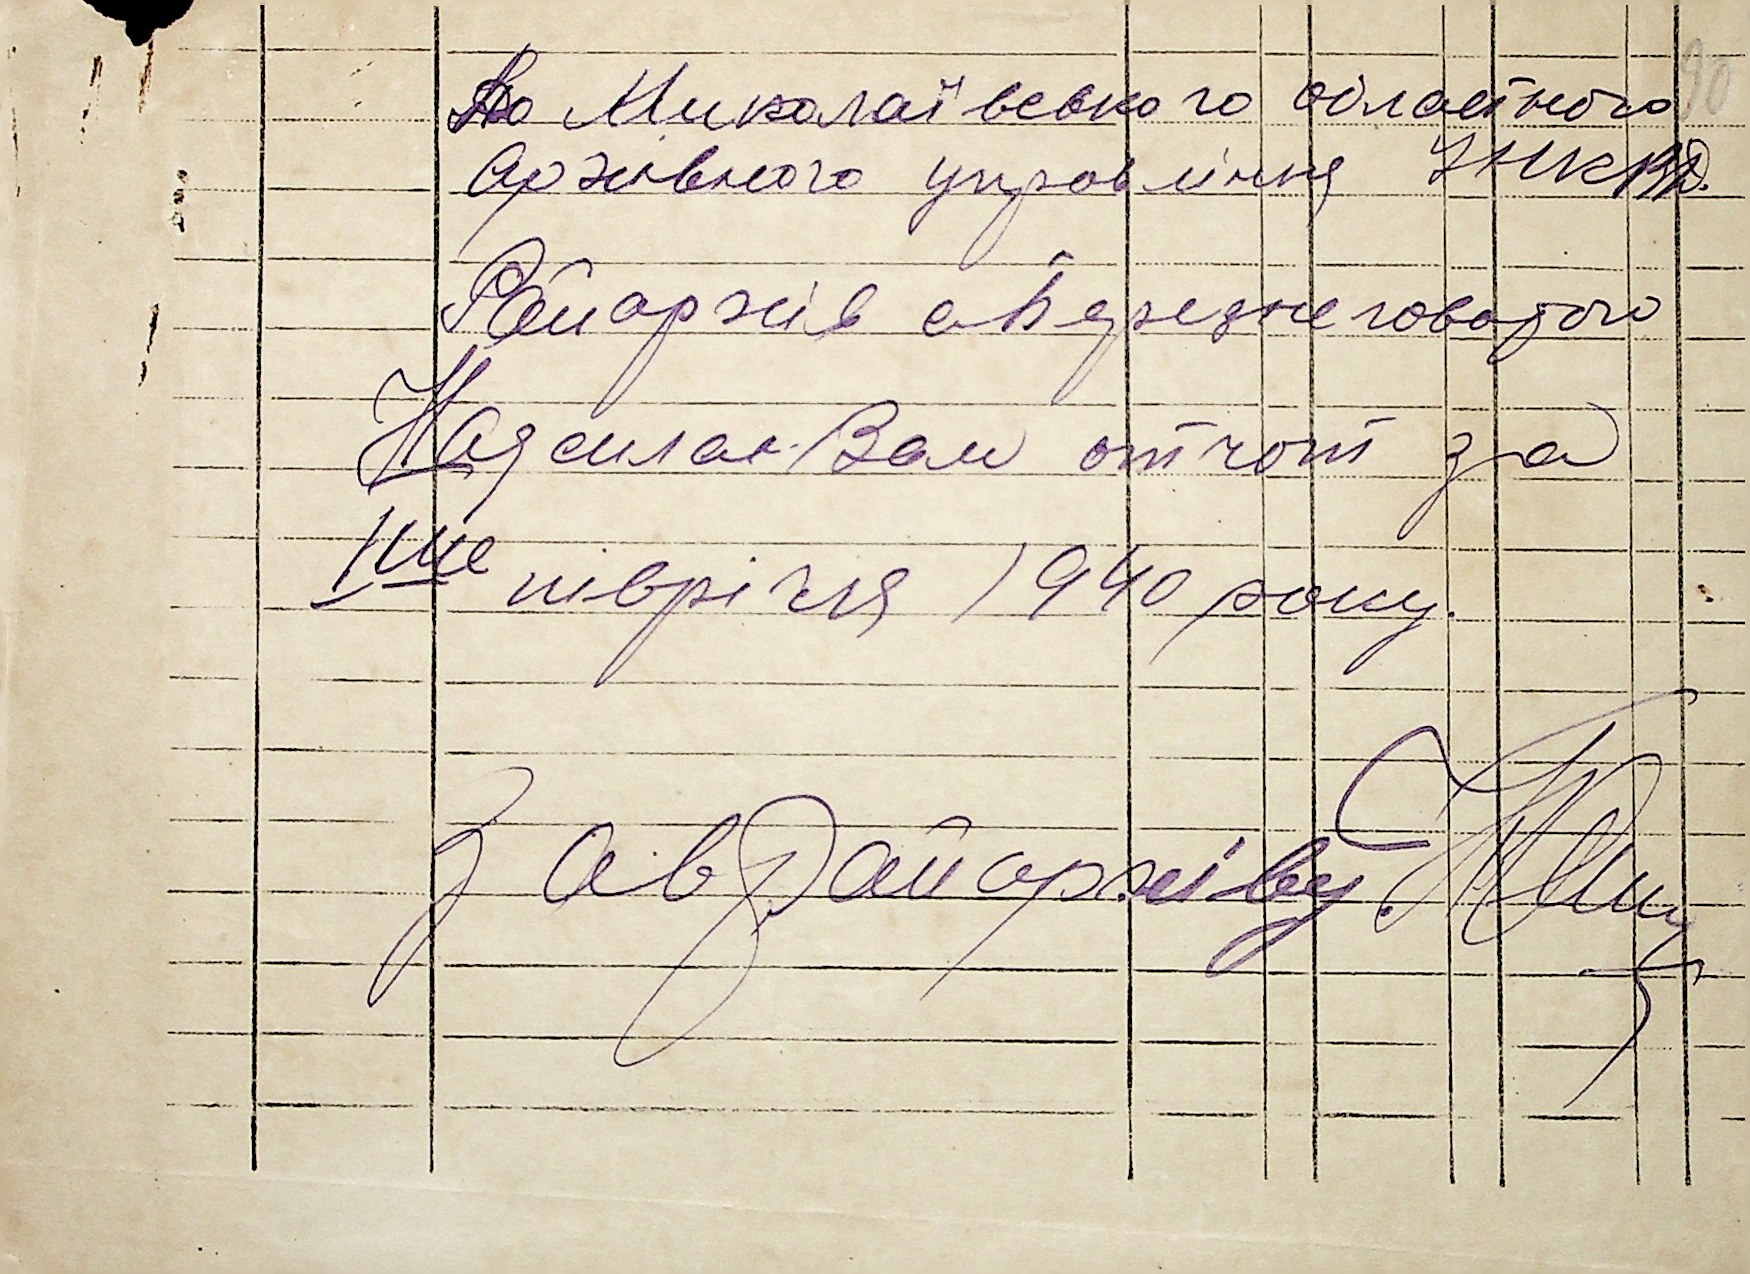 До Миколаївського обласного
90
архівного управління УНКВД.
Райархів с Березнеговатого
Надсилає Вам отчот за
Iше півріччя 1940 року.
Зав Райархіву.